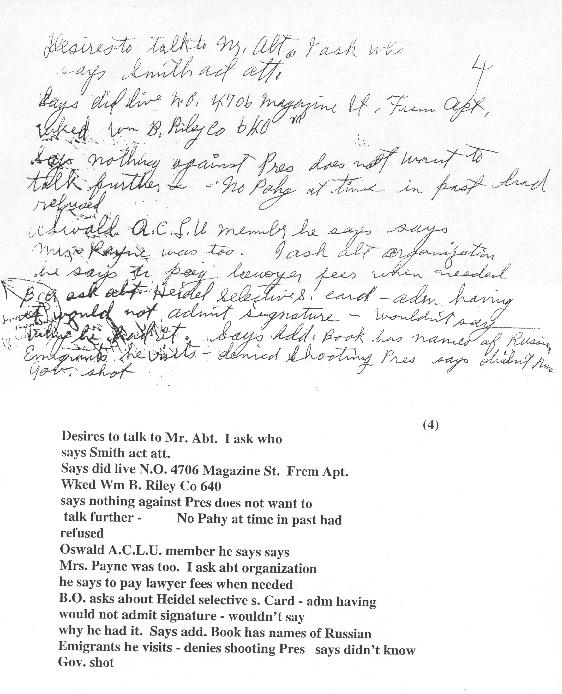 Desires to talk to Mr. Abt. I ask who
says Smith act att.
4
Says did live N.O. 4706 Magazine St. From Apt.
Wked Wm B. Riley Co 640
says nothing against Pres does not want to
talk further - No Pahy at time in past had
refused
Oswald A.C.L.U member he says says
Mrs. Payne was too. I ask abt organization
he says to pay lawyer fees when needed
B.O. ask abt Heidel selective S. card - adm having
would not admit signature - wouldn't say
why he had it. Says add. Book has names of Russian
Emigrants he visits - denied shooting Pres says didn't know
Gov. shot
(4)
Desires to talk to Mr. Abt. I ask who
says Smith act att.
Says did live N.O. 4706 Magazine St. Frem Apt.
Wked Wm B. Riley Co 640
says nothing against Pres does not want to
talk further - No Pahy at time in past had
refused
Oswald A.C.L.U. member he says says
Mrs. Payne was too. I ask abt organization
he says to pay lawyer fees when needed
B.O. asks about Heidel selective s. Card - adm having
would not admit signature - wouldn't say
why he had it. Says add. Book has names of Russian
Emigrants he visits - denies shooting Pres says didn't know
Gov. shot